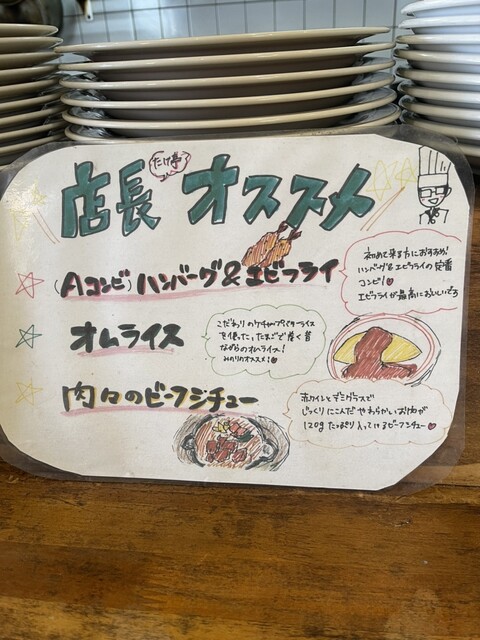 店長オススメ
たけ亭
(Aコンビ)ハンバーグ&エビフライ
初めて来る方におすすめ!
ハンバーグ&エビフライの定番
コンビ!
エビフライが最高においしいです
オムライス
こだわりのケチャップでライス
を使った、たまごで巻く昔
ながらのオムライス!
みのりのオススメ!
肉々のビーフシチュー
赤ワインとデミグラスで
じっくりにこんだやわらかいおにくが
120gたっぷり入ってけるビーフシチュー